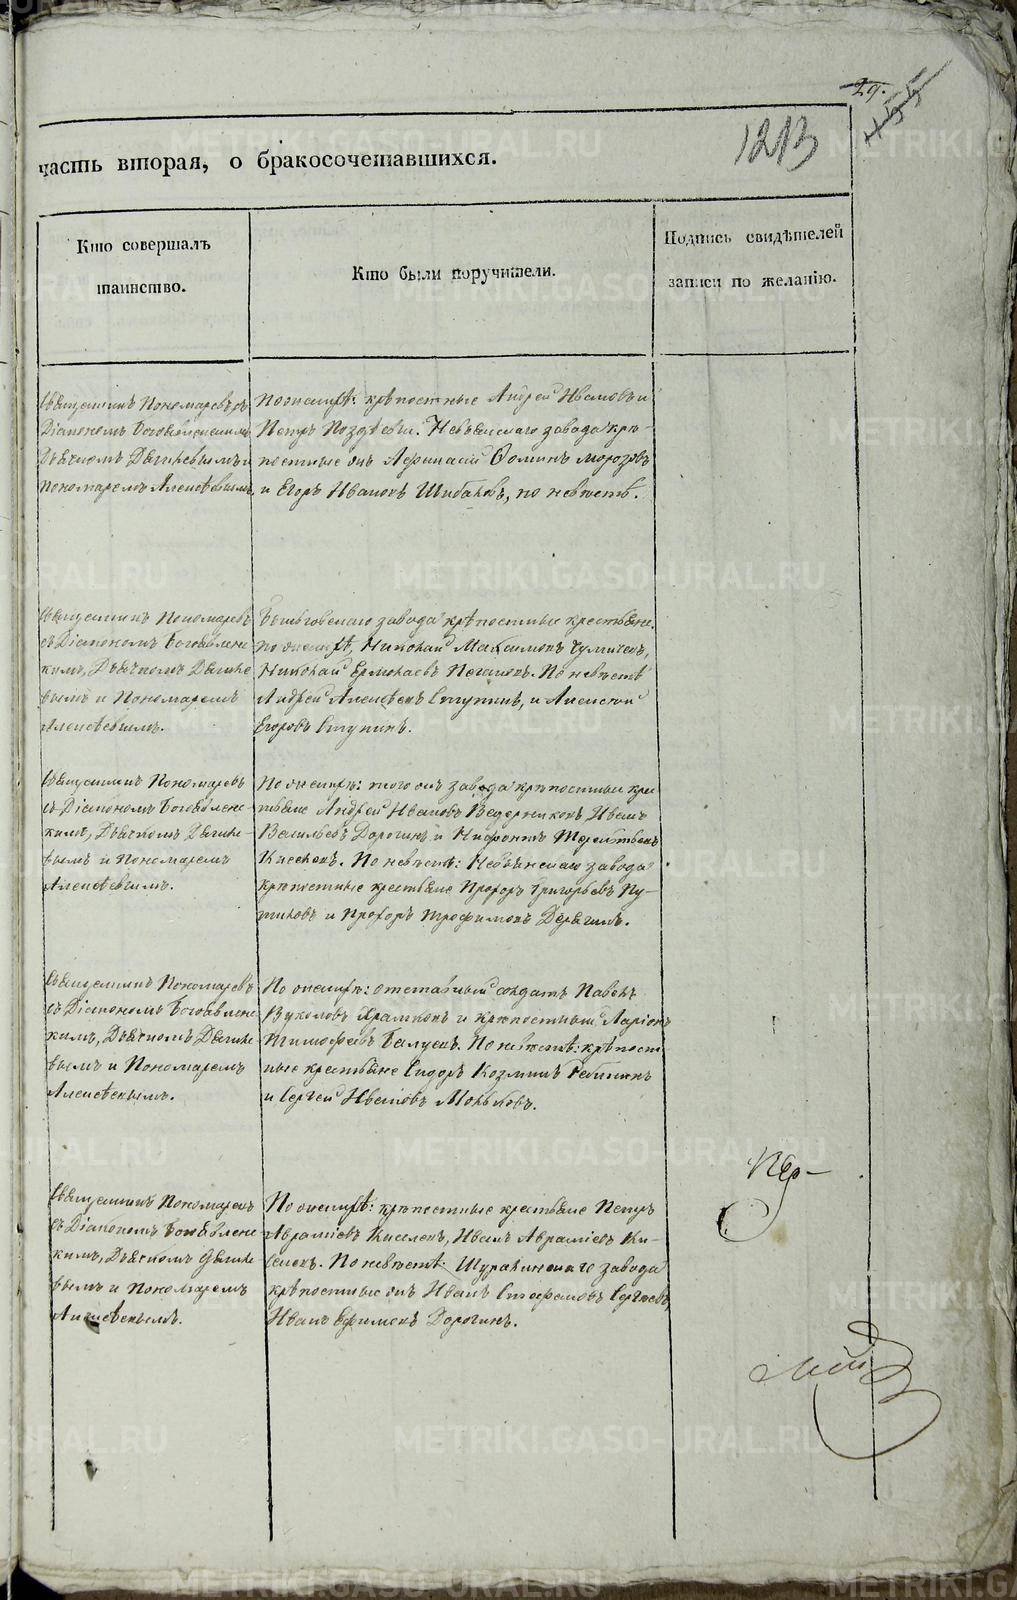 29.
1213
часть вторая, о бракосочетавшихся.
Кто совершалъ
таинство.
Кто были поручители.
Подпись свидѣтелей
записи по желанію.
Священникъ Пономаревъ съ
Діакономъ Богоявленскимъ
Дьячкомъ
Пономаремъ Алексѣевымъ,
По женихѣ: крѣпостные Андрей Ивановъ и
Петръ Поздѣевы. Невьянскаго завода крѣ-
постные онъ Афанасій Фоминъ Морозовъ
и Егоръ Ивановъ Шибаковъ, по невѣстѣ.
Священникъ Пономаревъ
съ Діакономъ Богоявленс
кимъ, Дьячкомъ
вымъ и Пономаремъ
Алексѣевымъ.
завода крѣпостные крестьяне.
по женихѣ, Николай Максимовъ
Николай Ермолаевъ По невѣстѣ
Андрей Алексѣевъ Ступинъ, и Алексѣй
Егоровъ Ступинъ.
Священникъ Пономаревъ
съ Діакономъ Богоявленс-
кимъ, Дьячкомъ
вымъ и Пономаремъ
Алексѣевымъ.
По женихѣ: того онъ завода крѣпостные кре
стьяне Андрей Ивановъ Ведерниковъ Иванъ
Васильевъ Дорогинъ и Нифонтъ Терентьевъ
Киселевъ. По невѣстѣ: Невьянскаго завода
крѣпостные крестьяне Прохоръ Григорьевъ Пу-
тиловъ и Прохоръ Трофимовъ
Священникъ Пономаревъ
съ Діакономъ Богоявленс
кимъ, Дьячкомъ
вымъ и Пономаремъ
Алексѣевымъ.
По женихѣ: отставный солдатъ Павелъ
Вуколовъ Храмковъ и крѣпостный Ларіонъ
Тимофеевъ По невѣстѣ: крѣпост
ные крестьяне Сидоръ Козминъ
и Сергей Ивановъ
Пер-
Священникъ Пономаревъ
съ Діакономъ Богоявленс
кимъ, Дьячкомъ
вымъ и Пономаремъ
Алексѣевымъ.
По женихѣ: крѣпостные крестьяне Петръ
Авраміевъ Киселевъ, Иванъ Авраміевъ Ки-
селевъ. По невѣстѣ: Шуралинскаго завода
крѣпостные онъ Иванъ Стефановъ Сергѣевъ,
Иванъ Ефимовъ Дорогинъ.
METRIKI.GASO-URAL.RU